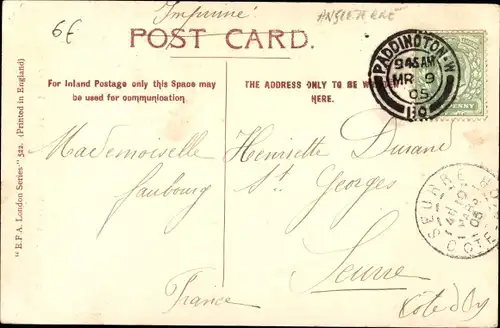 6€
Imprimé
ANGLETERRE
POST CARD.
PADDINGTON. W
9.45 AM
MR 9
05
For Inland Postage only this Space may
be used for communication
THE ADDRESS ONLY TO BE
HERE.
"E.F.A. London Series" 522. (Printed in England)
Mademoiselle Henriette Durane
faubourg St. Georges
Seurre
France
Côte d'Or
SEURRE
05